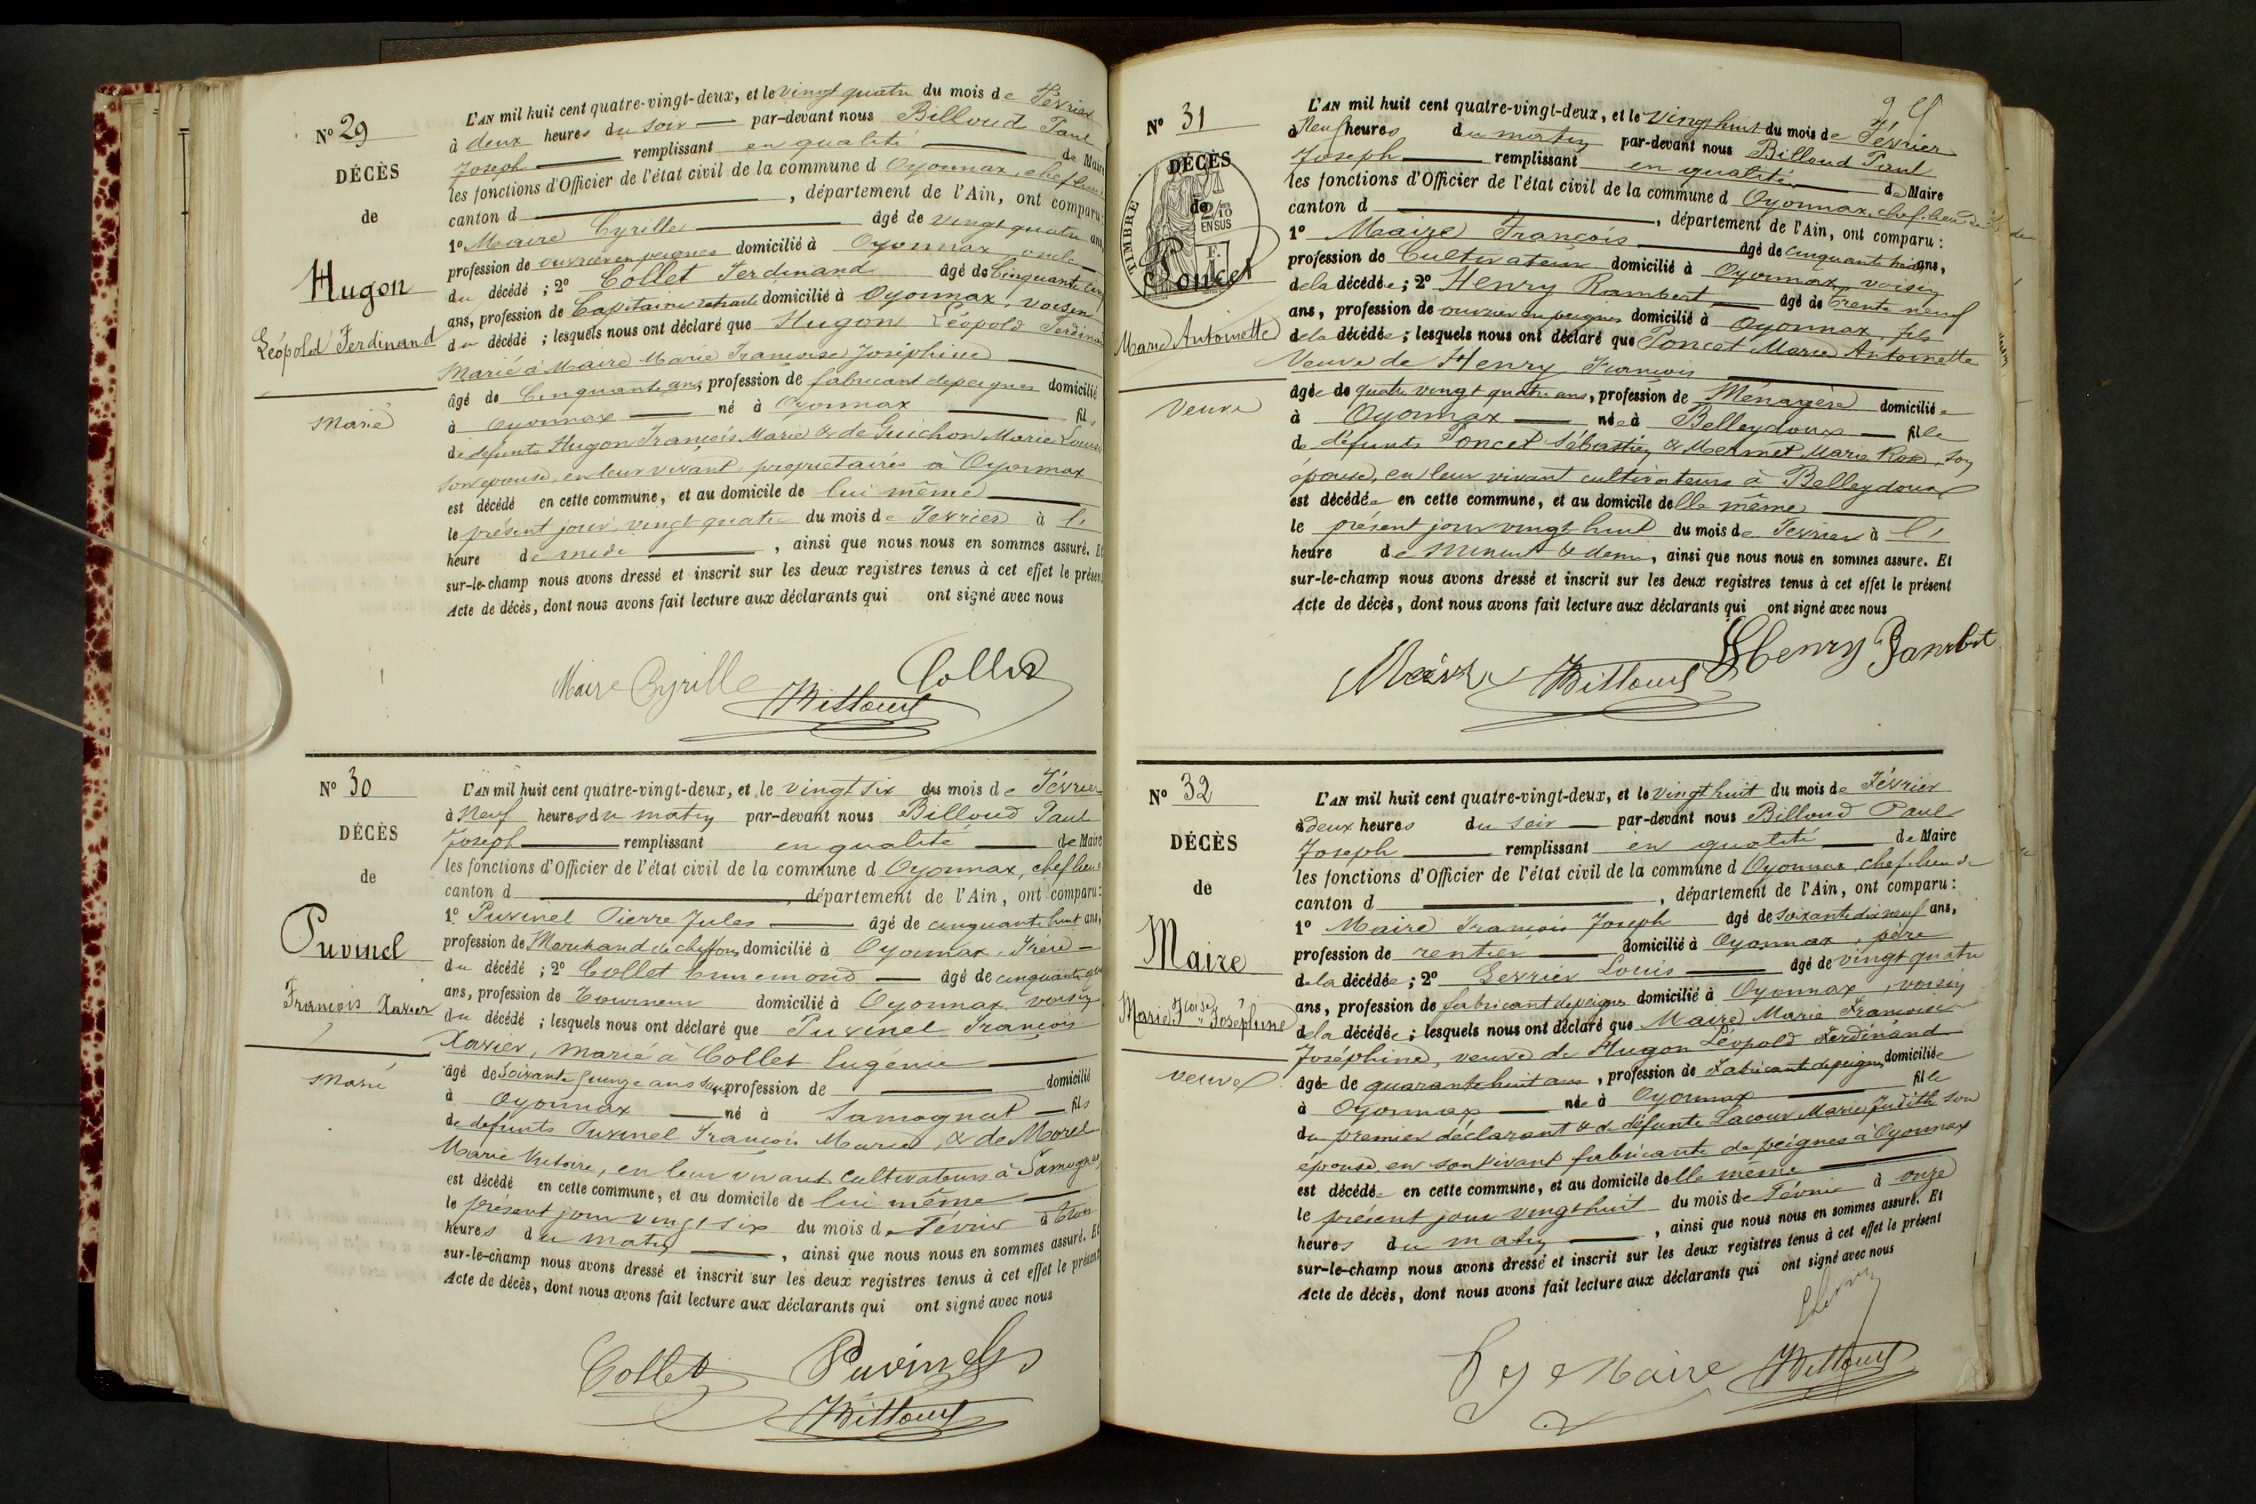 N° 29
DÉCÈS
de
Hugon
Léopold Ferdinand
Marié
L'AN mil huit cent quatre-vingt-deux, et le vingt quatre du mois de Février
à deux heures du soir par-devant nous Billoud Paul
Joseph remplissant en qualité de Maire
les fonctions d'Officier de l'état civil de la commune d Oyonnax, chef lieu
canton d , département de l'Ain, ont comparu:
1° Maire Cyrille âgé de vingt quatre ans
profession de ouvrier en peignes domicilié à Oyonnax, oncle
du décédé ; 2° Collet Ferdinand âgé de Cinquante
ans, profession de Capitaine retraité domicilié à Oyonnax, voisin
du décédé ; lesquels nous ont déclaré que Hugon Léopold Ferdinand
Marié à Maire Marie Françoise Joséphine
âgé de Cinquante ans, profession de fabricant de peignes domicilié
à Oyonnax né à Oyonnax fils
de défunts Hugon François Marie & de Guichon Marie Louise
son épouse, en leur vivant propriétaires à Oyonnax
est décédé en cette commune, et au domicile de lui même
le présent jour vingt quatre du mois de Février à l'
heure de midi , ainsi que nous nous en sommes assuré. Et
sur-le-champ nous avons dressé et inscrit sur les deux registres tenus à cet effet le présent
Acte de décès, dont nous avons fait lecture aux déclarants qui ont signé avec nous
Maire Cyrille Collet
N° 30
DÉCÈS
de
Puvinel
François Xavier
Marié
L'AN mil huit cent quatre-vingt-deux, et le vingt six du mois de Février
à Neuf heures du matin par-devant nous Billoud Paul
Joseph remplissant en qualité de Maire
les fonctions d'Officier de l'état civil de la commune d Oyonnax, chef lieu
canton d , département de l'Ain, ont comparu:
1° Puvinel Pierre Jules âgé de cinquante huit ans,
profession de Marchand de chiffons domicilié à Oyonnax, Frère
du décédé ; 2° Collet Ennemond âgé de cinquante
ans, profession de Tourneur domicilié à Oyonnax, voisin
du décédé ; lesquels nous ont déclaré que Puvinel François
Xavier, marié à Collet Eugénie
âgé de Soixante Quinze ans sans profession de domicilié
à Oyonnax né à Samognat fils
de défunts Puvinel François Marie, & de Morel
Marie Victoire, en leur vivant cultivateurs à Samognat
est décédé en cette commune, et au domicile de lui même
le présent jour vingt six du mois de Février à
heures du matin , ainsi que nous nous en sommes assuré. Et
sur-le-champ nous avons dressé et inscrit sur les deux registres tenus à cet effet le présent
Acte de décès, dont nous avons fait lecture aux déclarants qui ont signé avec nous
Collet Puvinel
N° 31
DÉCÈS
de
TIMBRE
2/10
EN SUS
Poncet
Marie Antoinette
Veuve
L'AN mil huit cent quatre-vingt-deux, et le vingt huit du mois de Février
à Neuf heures du matin par-devant nous Billoud Paul
Joseph remplissant en qualité de Maire
les fonctions d'Officier de l'état civil de la commune d Oyonnax, chef lieu de
canton d , département de l'Ain, ont comparu :
1° Maire François âgé de cinquante ans,
profession de Cultivateur domicilié à Oyonnax, voisin
de la décédée ; 2° Henry Rambert âgé de trente neuf
ans, profession de ouvrier en peignes domicilié à Oyonnax, fils
de la décédée ; lesquels nous ont déclaré que Poncet Marie Antoinette
Veuve de Henry François
âgée de quatre vingt quatre ans, profession de Ménagère domiciliée
à Oyonnax née à Belleydoux fille
de défunts Poncet Sébastien & Mermet Marie Rose, son
épouse, en leur vivant cultivateurs à Belleydoux
est décédée en cette commune, et au domicile d'elle même
le présent jour vingt huit du mois de Février à l'
heure de minuit & demi, ainsi que nous nous en sommes assuré. Et
sur-le-champ nous avons dressé et inscrit sur les deux registres tenus à cet effet le présent
Acte de décès, dont nous avons fait lecture aux déclarants qui ont signé avec nous
Maire Henry Rambert
N° 32
DÉCÈS
de
Maire
Marie Fçoise Joséphine
veuve
L'AN mil huit cent quatre-vingt-deux, et le vingt huit du mois de Février
à deux heures du soir par-devant nous Billoud Paul
Joseph remplissant en qualité de Maire
les fonctions d'Officier de l'état civil de la commune d Oyonnax, chef lieu de
canton d , département de l'Ain, ont comparu :
1° Maire François Joseph âgé de soixante dix neuf ans,
profession de rentier domicilié à Oyonnax, père
de la décédée ; 2° Gerrier Louis âgé de vingt quatre
ans, profession de fabricant de peignes domicilié à Oyonnax, voisin
de la décédée ; lesquels nous ont déclaré que Maire Marie Françoise
Joséphine, veuve de Hugon Léopold Ferdinand
âgée de quarante huit ans, profession de Fabricant de peignes domiciliée
à Oyonnax née à Oyonnax fille
du premier déclarant & de défunte Lacour Marie Judith son
épouse, en son vivant fabricante de peignes à Oyonnax
est décédée en cette commune, et au domicile d'elle même
le présent jour vingt huit du mois de Février à onze
heures du matin , ainsi que nous nous en sommes assuré. Et
sur-le-champ nous avons dressé et inscrit sur les deux registres tenus à cet effet le présent
Acte de décès, dont nous avons fait lecture aux déclarants qui ont signé avec nous
Maire